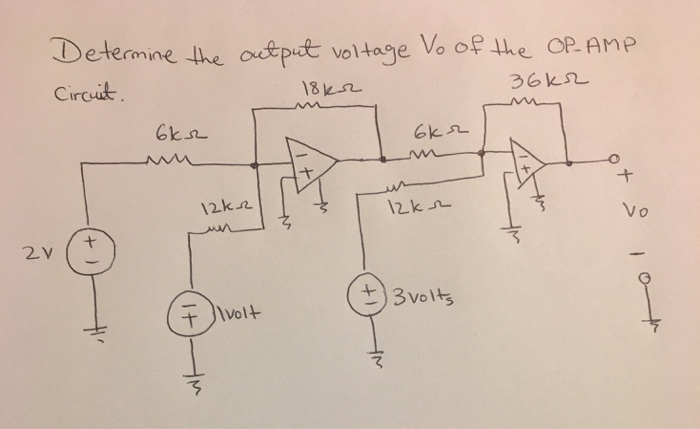 Determine the output voltage Vo of the OP-AMP
Circuit.
18kΩ
36kΩ
6kΩ
6kΩ
- +
- +
12kΩ
12kΩ
+
Vo
-
2V
+ -
- +
1volt
+ -
3volts